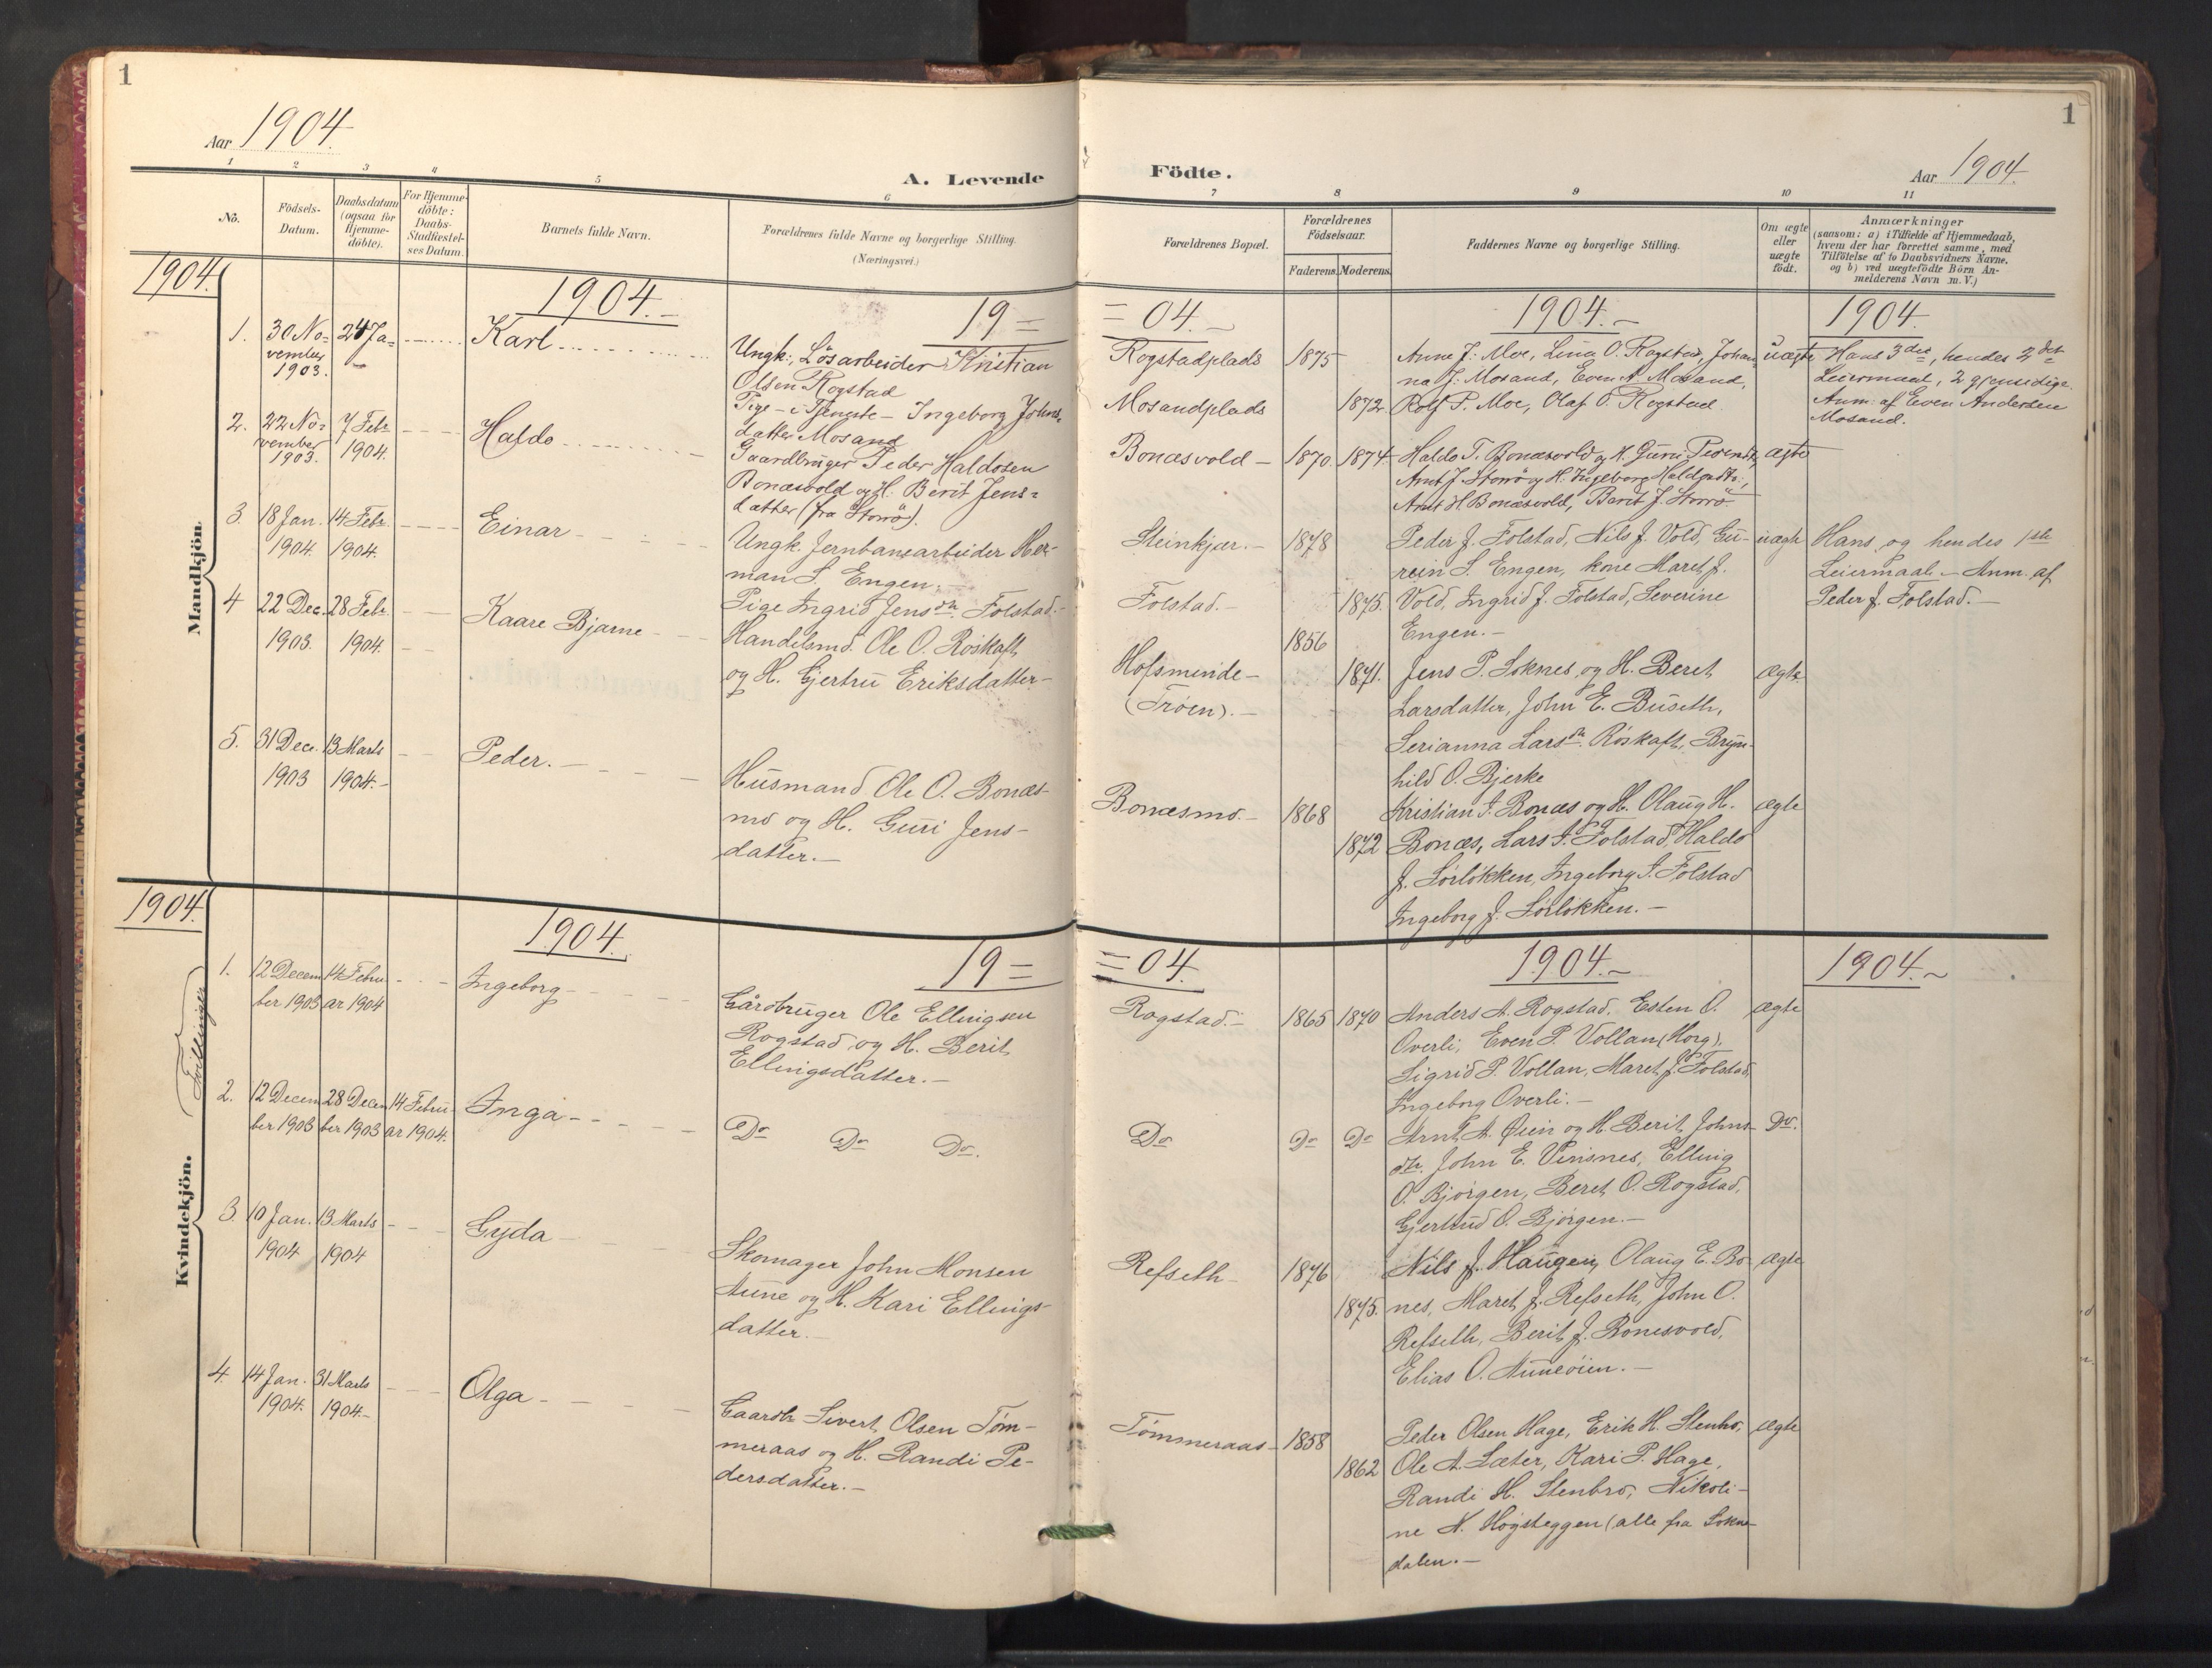 1
1
Aar 1904.
Aar 1904.
A. Levende
Födte.
1 2 3 4 5 6
7 8 9 10 11
No.
Födsels-
Datum.
Daabsdatum
(ogsaa for
Hjemme-
döbte).
For Hjemme-
döbte:
Daabs-
Stadfæstel-
ses Datum.
Barnets fulde Navn.
Forældrenes fulde Navne og borgerlige Stilling.
(Næringsvei.)
Forældrenes Bopæl.
Forældrenes
Födselsaar.
Faderens. Moderens.
Faddernes Navne og borgerlige Stilling.
Om ægte
eller
uægte
födt.
Anmærkninger
(saasom: a) i Tilfælde af Hjemmedaab,
hvem der har forrettet samme, med
Tilföielse af to Daabsvidners Navne.
og b) ved uægtefödte Börn An-
melderens Navn m. V.)
1904.
1904.
19 =
= 04.
1904.
1904.
Mandkjön.
1.
30 No-
vember
1903.
24 Ja-
Karl
Ungk., Lösarbeider Kristian
Olsen Rogstad
Pige - i Tjeneste - Ingeborg Johns-
datter Mosand
Rogstadplads
Mosandplads
1875
1872
Anne J. Moe, Lina O. Rogstad, Johan-
na J. Mosand, Even A. Mosand,
Rolf P. Moe, Olaf O. Rogstad
uægte
Hans 3die, hendes 2det
Leiermaal, 2 gjensidige.
Anm. af Even Andersen
Mosand.
2.
22 No-
vember
1903.
7 Febr.
1904.
Haldo
Gaardbruger Peder Haldosen
Bonæsvold og H. Berit Jens-
datter (fra Storrö).
Bonæsvold
1870. 1874.
Haldo T. Bonæsvold og K. Guru
Arnt J. Storrö og H. Ingeborg Haldosdtr.,
Arnt H Bonæsvold, Berit J. Storrö.
ægte
3.
18 Jan.
1904.
14 Febr.
1904.
Einar
Ungk. Jernbanearbeider Her-
man S. Engen.
Pige Ingrid Jensdtr. Folstad.
Steinkjær.
Folstad.
1878
1875.
Peder J. Folstad, Nils J. Vold, Gu-
rein S. Engen, kone Maret J.
Vold, Ingrid J. Folstad, Severine
Engen.
uægte
Hans og hendes 1ste
Leiermaal. - Anm. af
Peder J. Folstad.
4
22 Dec.
1903.
28 Febr.
1904.
Kaare Bjarne
Handelsmd. Ole O. Röskaft
og H. Gjertru Eriksdatter
Hofsminde
(Tröen).
1856
1871.
Jens P. Soknes og H. Beret
Larsdatter, John E. Buseth,
Serianna Larsdtr. Röskaft, Bryn-
hild O. Bjerke
ægte
5.
31 Dec.
1903
13 Marts
1904.
Peder.
Husmand Ole O. Bonæs-
mo og H. Guri Jens-
datter.
Bonæsmo.
1868
1872
Kristian I. Bonæs og H. Olaug H.
Bonæs, Lars J. Folstad, Haldo
J. Sörlökken, Ingeborg I. Folstad
Ingeborg J. Sörlökken.
ægte
1904.
1904.
19 =
= 04.
1904.
1904.
Kvindekjön.
Tvillinger
1.
12 Decem-
ber 1903
14 Febru-
ar 1904
Ingeborg
Gårdbruger Ole Ellingsen
Rogstad og H. Berit
Ellingsdatter.
Rogstad.
1865 1870
Anders A. Rogstad, Esten O.
Overli, Even P. Vollan (Horg),
Sigrid P. Vollan, Maret J. Folstad,
Ingeborg Overli.
ægte
2.
12 Decem-
ber 1903
28 Decem-
ber 1903
14 Febru-
ar 1904.
Inga
Do Do Do.
Do
Do Do
Arnt A. Öien og H. Berit Johns-
dtr. John E. Vinsnes, Elling
O. Bjørgen, Beret O. Rogstad,
Gjertrud O. Bjørgen.
Do.
3.
10 Jan.
1904
13 Marts
1904
Gyda
Skomager John Monsen
Aune og H. Kari Ellings-
datter.
Refseth
1876
1875.
Nils J. Haugen, Olaug E. Bo-
nes, Maret J. Refseth, John O.
Refseth, Berit J. Bonesvold,
Elias O. Auneöien.
ægte
4.
14 Jan.
1904.
31 Marts
1904.
Olga
Gaardbr. Sivert Olsen Töm-
meraas og H. Randi Pe-
dersdatter.
Tömmeraas
1858
1862
Peder Olsen Hage, Erik H. Stenbro,
Ole A. Sæter, Kari P. Hage,
Randi H. Stenbro, Nikoli-
ne N. Högsteggen (alle fra Sokne-
dalen.
ægte